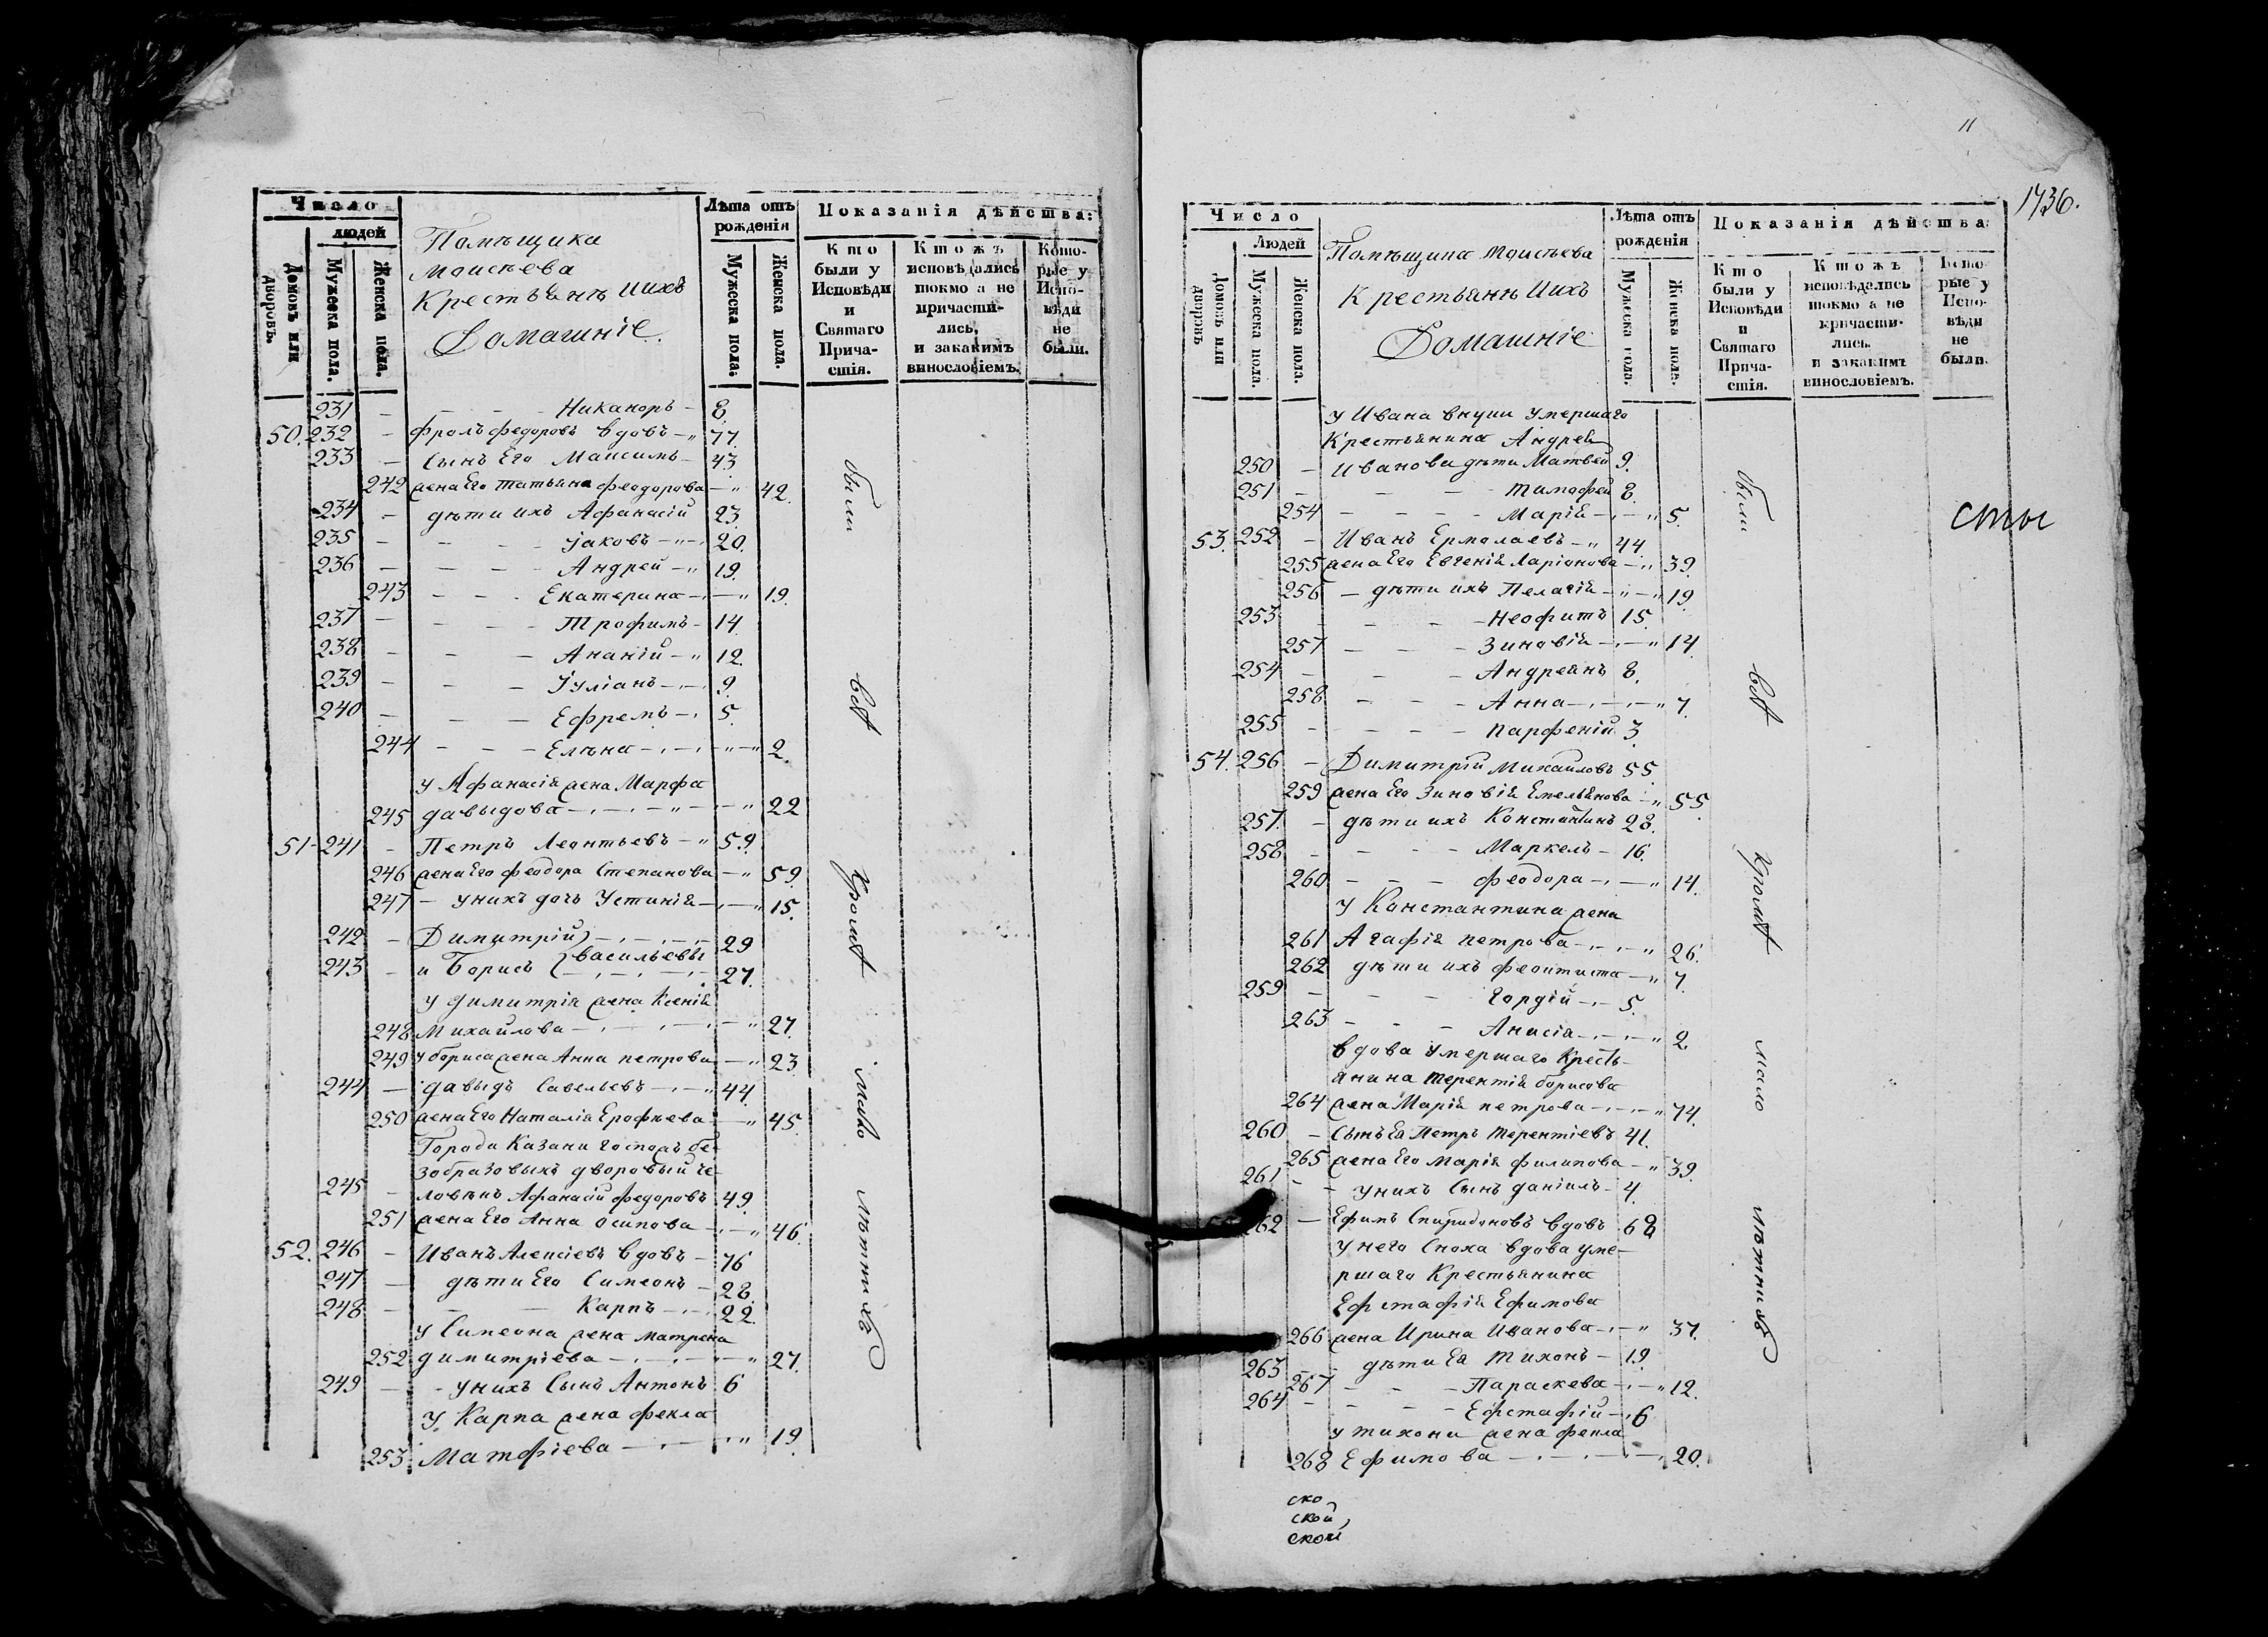 Число
людей
Домовъ или дворовъ
Мужеска пола.
Женска пола.
Помѣщика
Моисѣева
Крестьянъ и ихъ
Домашніе.
Лѣта отъ рожденія
Мужеска пола.
Женска пола.
Показанія дѣйства:
Кто были у Исповѣди и Святаго Причастія.
Ктожъ исповѣдались токмо а не причастились, и закакимъ винословіемъ.
Которые у Исповѣди не были.
231 - - - Никаноръ - 8.
50. 232 - Фролъ Федоровъ вдовъ - 77
233 - Сынъ Его Максимъ - 43
242 жена Его Татьяна Феодорова - 42.
234 - дѣти ихъ Афанасій 23.
235 - - - Іаковъ - 20.
236 - - - Андрей - 19.
243 - - Екатерина - 19.
237 - - - Трофимъ - 14
238 - - - Ананій - 12.
239 - - - Іуліанъ - 9.
240 - - - Ефремъ - 5.
244 - - - Елѣна - 2.
у Афанасія жена Марфа
245 давыдова - 22
51 - 241 - Петръ Леонтьевъ - 59.
246 жена Его Феодора Степанова - 59
247 - у нихъ дочь Устинія - 15.
242 - Димитрій - 29
Васильевы
243 - и Борисъ - 27.
у димитрія жена Ксенія
248 Михайлова - 27.
249 у бориса жена Анна петрова - 23
244 - давыдъ Савельевъ - 44
250 жена Его Наталія Ерофѣева - 45
Города Казани господъ бе-
зобразовыхъ дворовый че-
245 - ловѣкъ Афанасій федоровъ 49.
251 жена Его Анна осипова - 46.
52. 246 - Иванъ Алексіевъ вдовъ - 76
247 - дѣти Его Симеонъ - 28.
248 - - Карпъ - 22.
у Симеона жена матрена
252 димитріева - 27.
249 - - у нихъ Сынъ Антонъ 6
у Карпа жена фекла
253 Матфіева - 19.
были
всѣ
кромѣ
мало
лѣтнихъ
11
1736.
Число
Людей
Домовъ или дворовъ
Мужеска пола.
Женска пола.
Помѣщика Моисѣева
Крестьянъ и ихъ
Домашніе
Лѣта отъ рожденія
Мужеска пола.
Женска пола.
Показанія дѣйства
Кто были у Исповѣди и Святаго Причастія.
Ктожъ исповѣдались токмо а не причастились. и закакимъ винословіемъ.
Которые у Исповѣди не были.
у Ивана внуки умершаго
Крестьянина Андрея
250 - Иванова дѣти Матвей 9.
251 - - - Тимофей 8.
254 - - - - Марія - 5.
53. 252 - Иванъ Ермолаевъ - 44.
255 жена Его Евгенія Ларіонова - 39.
256 - дѣти ихъ Пелагія - 19.
253 - - - Неофитъ 15.
257 - - - Зиновія - 14
254 - - - Андреянъ 8.
258 - - - Анна - 7.
255 - - - - Парфеній 3.
54. 256 - Димитрій Михайловъ 55
259 жена Его Зиновія Емельянова - 55.
257. - дѣти ихъ Константинъ 28.
258 - - - Маркелъ - 16.
260 - - - феодора - 14.
у Константина жена
261 Агафія петрова - 26.
262 дѣти ихъ феоктиста - 7
259 - - - Гордій - 5.
263 - - - Анисія - 2.
вдова умершаго Кресть-
янина Терентія борисова
264 жена Марія петрова - 74.
260 - Сынъ Ея Петръ Терентіевъ 41.
265 жена Его Марія филипова - 39.
261 - - у нихъ Сынъ даніилъ - 4.
262 - Ефимъ Спиридоновъ вдовъ 68
у него Сноха вдова уме-
ршаго Крестьянина
Ефстафія Ефимова
266 жена Ирина Иванова - 37.
263 - - дѣти Ея Тихонъ - 19.
267 - - - Параскева - 12.
264 - - - Ефстафій - 6
у тихона жена фекла
268 Ефимова - 20.
были
всѣ
кромѣ
мало
лѣтнихъ
сты
ско
ской
ской